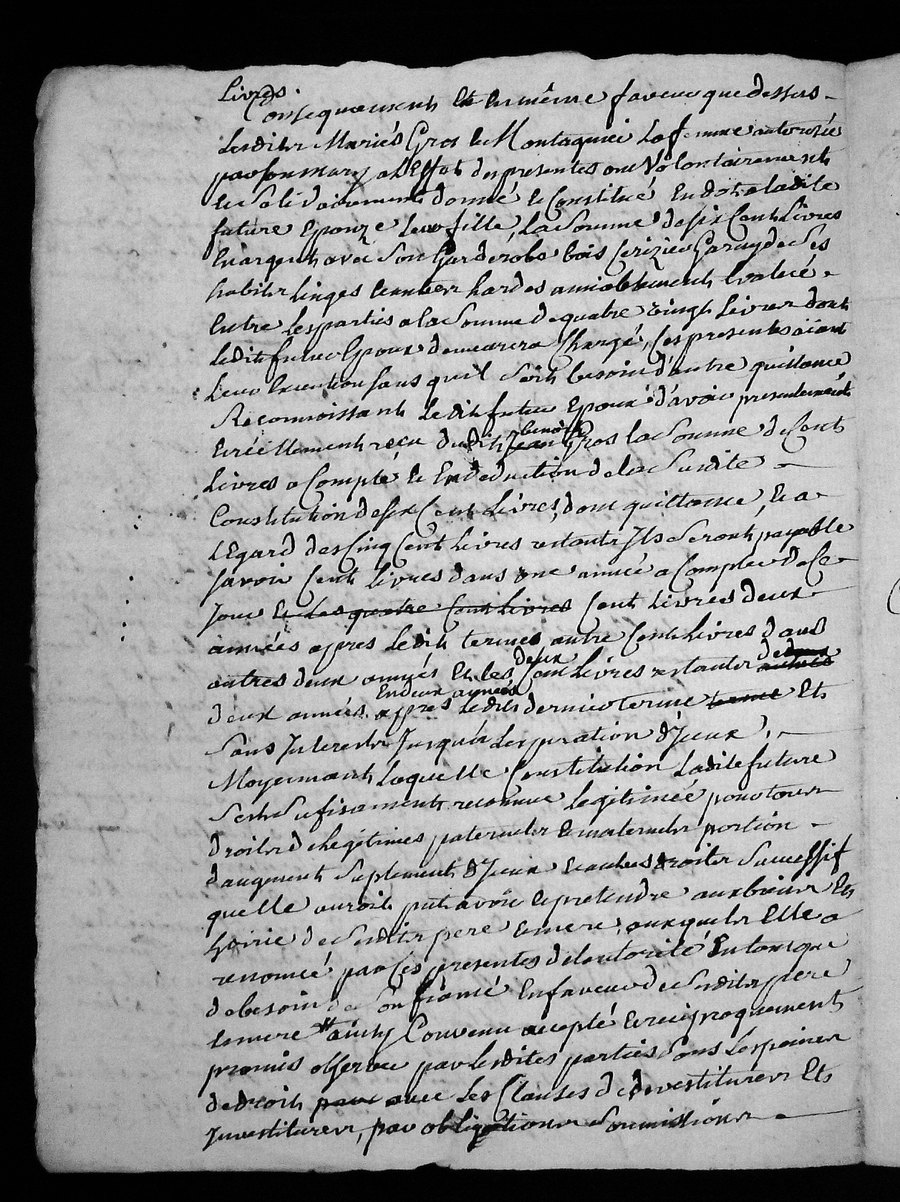 Livres.
Consequament Et En même faveur que dessus
Lesdits Mariés Gros Et Montagnié La femme autorisée
par son mary a L'Effet des presentes ont Volontairement
Et Solidairement donné Et Constitué En dot a ladite
future Epouze Leur fille La Somme de six Cent Livres
En argent avec Son Garderobe bois Cerizier Garny de Ses
habits Linges Et autres hardes amiablement Evalué
Entre Les parties a la Somme de quatre vingt Livres dont
Ledit futur Epoux demeurera Chargé, Ses presentes aiant
Leur Execution Sans quil Soit besoin d'autre quittance
Reconnoissant Ledit futur Epoux d'avoir presentement
Et réellement recu dudit Jean benoit Gros la Somme de Cent
Livres a Compte Et En deduction de la Susdite
Constitution de six Cent Livres, dont quittance, Et a
L'Egard des Cinq Cent Livres restants Ils Seront payable
Savoir Cent Livres dans une année a Compter de Ce
Jour Et Les quatre Cent Livres Cent Livres deux
années apres Ledit terme autre Cent Livres dans
autres deux années Et Les deux Cent Livres restants
deux années En deux années apres Ledit dernier terme terme Et
Sans Interests Jusqu'a L'expiration d'Iceux,
Moyennant Laquelle Constitution Ladite future
S'est Sufisament reconnue Legitimée pour tous
droits de Legitimes paternels Et maternels portion
d'augment Suplement d'Iceux Et autres droits Successif
quelle auroit put avoir Et pretendre aux biens Et
hoirie de Sesdits pere Et mere, auxquels Elle a
renoncé par Ces presentes de L'autorité En tant que
de besoin de Son fiancé En faveur de Sesdits pere
Et mere ainsy Convenu accepté Et reciproquement
promis observer par Lesdites parties Sous Les peines
de Droit par avec Les Clauses de devestitures Et
Investitures, par obligations Soumissions